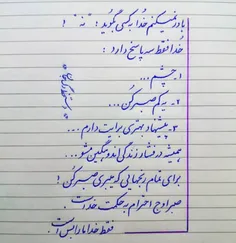 باور نمیکنم خدا به کسی بگوید: "نه"!
خدا فقط سه پاسخ دارد:
۱- چشم...
۲- یه کم صبر کن...
۳- پیشنهاد بهتری برایت دارم...
همیشه در فشار زندگی اندوهگین مشو...
برای تمام رنجهایی که میبری صبر کن!
صبر اوج احترام به حکمت خداست.
فقط خدا ما را بس است.